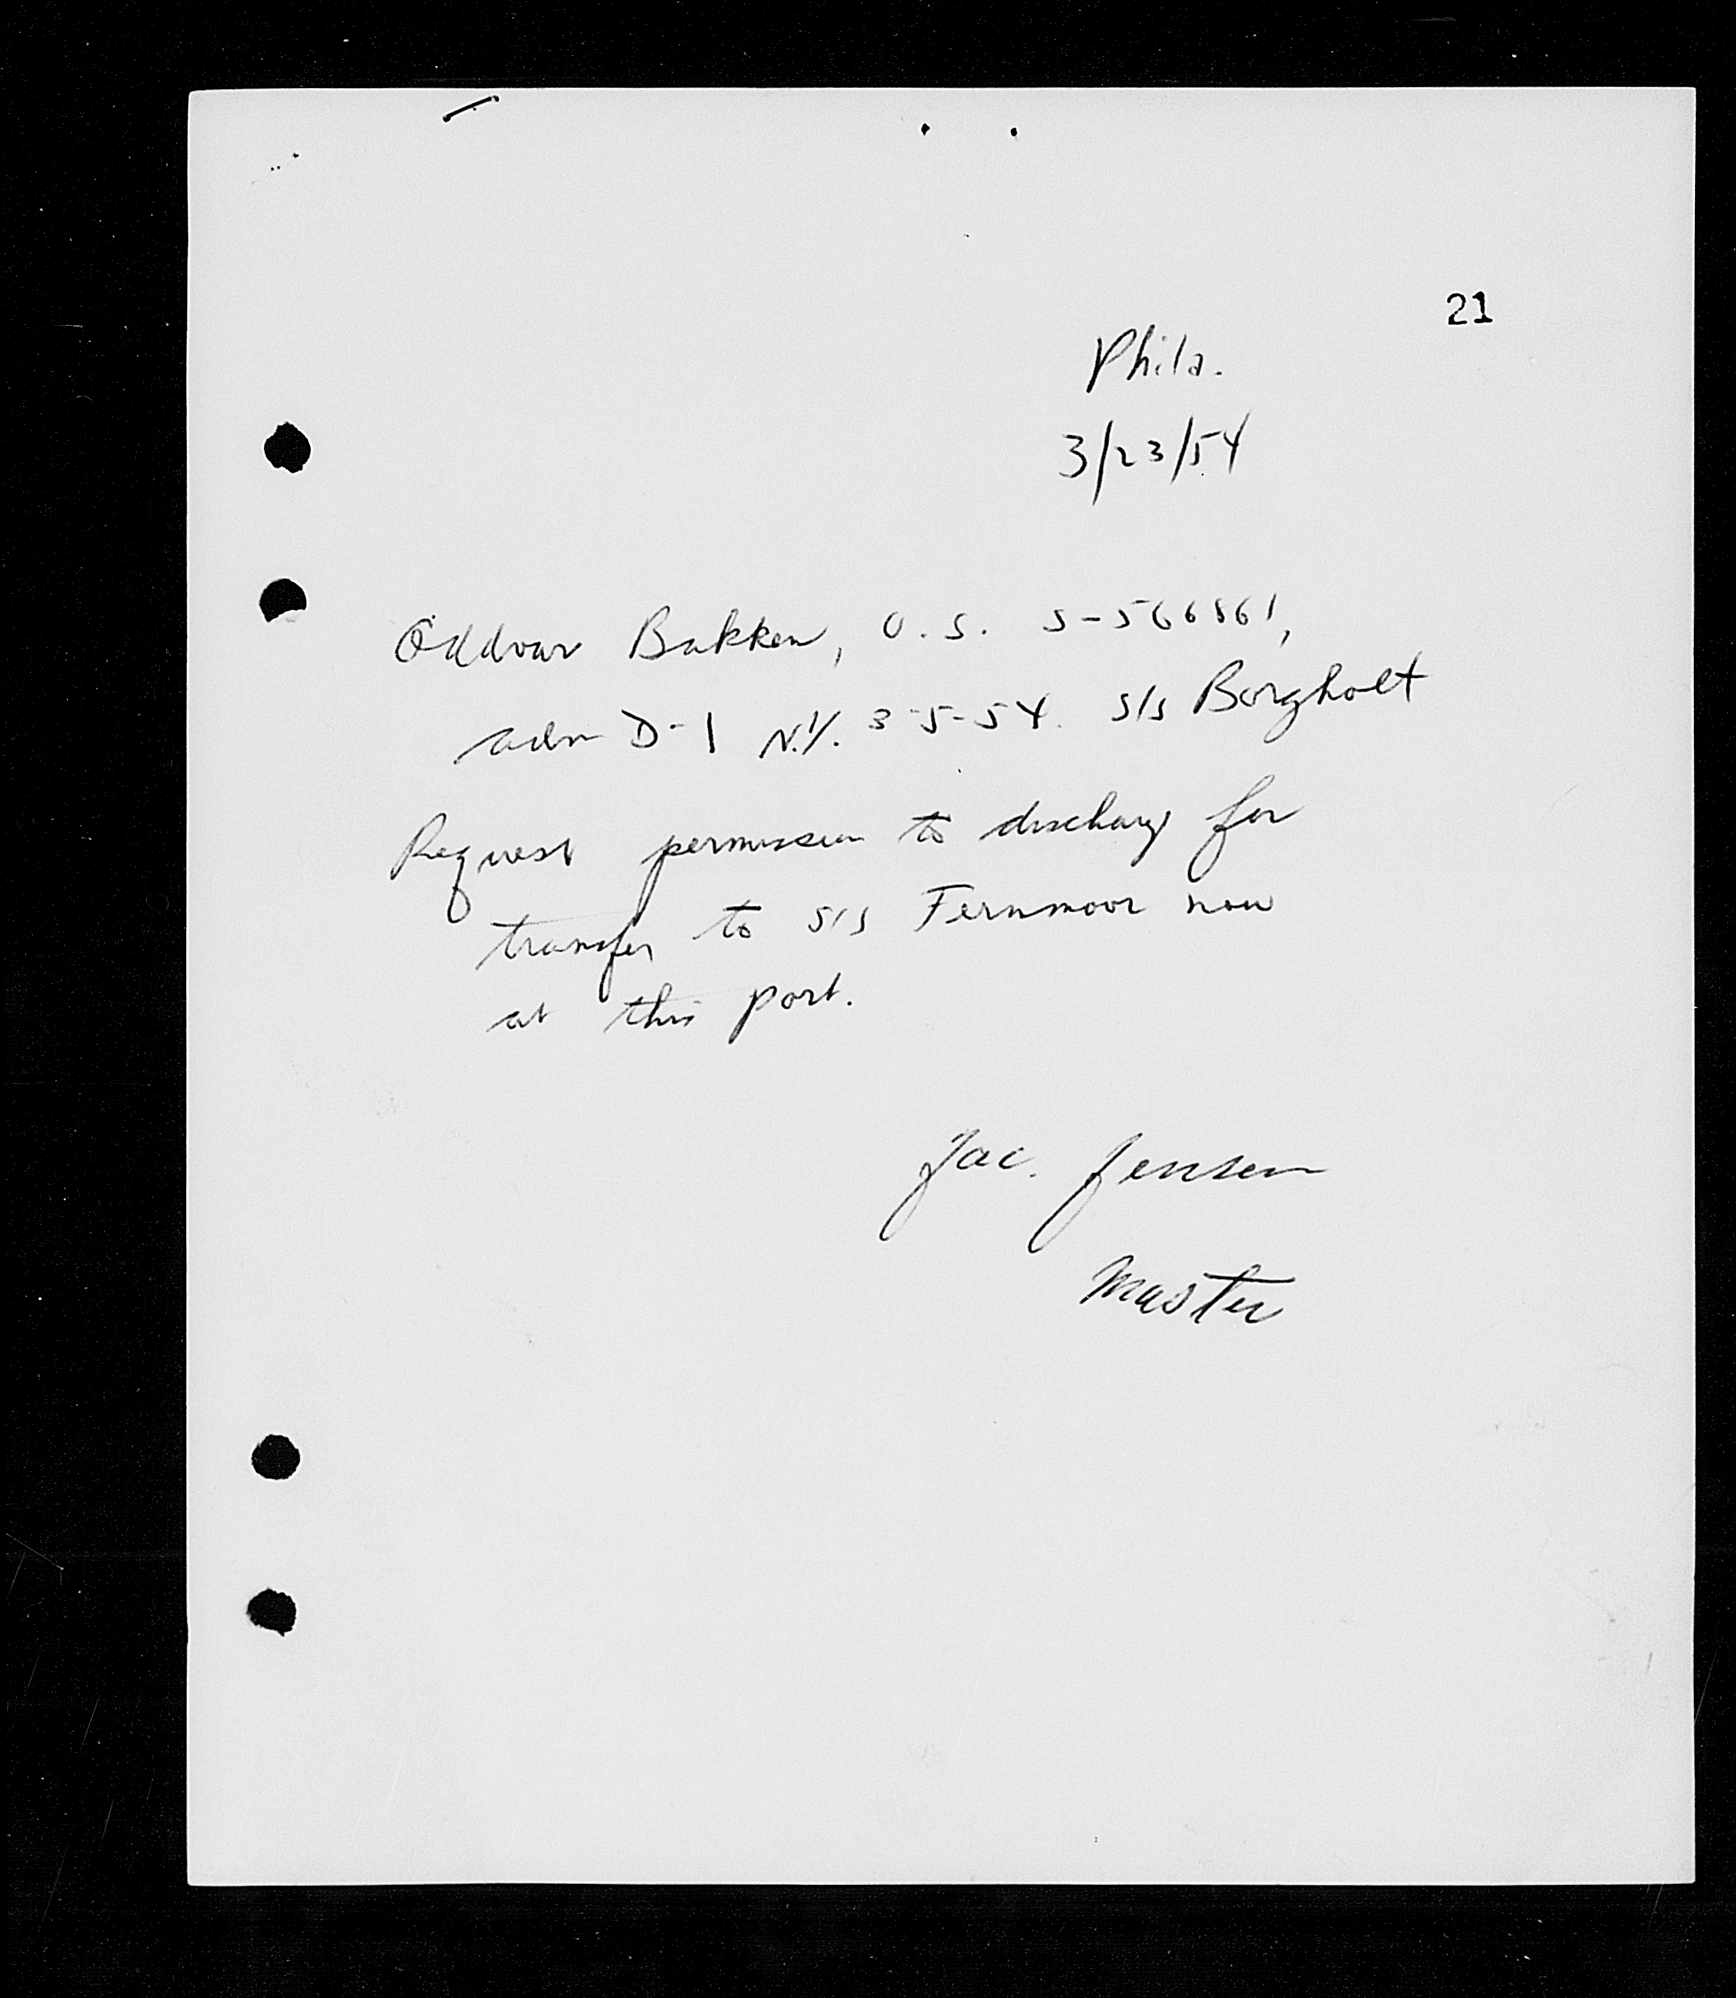 21
Phila.
3/23/54
Oddvar Bakken, O.S. S-566561,
adm D-1 N.Y. 3-5-54. S/S Borgholt
Request permission to discharge for
transfer to S/S Fernmoor now
at this port.
Jac. Jensen
Master